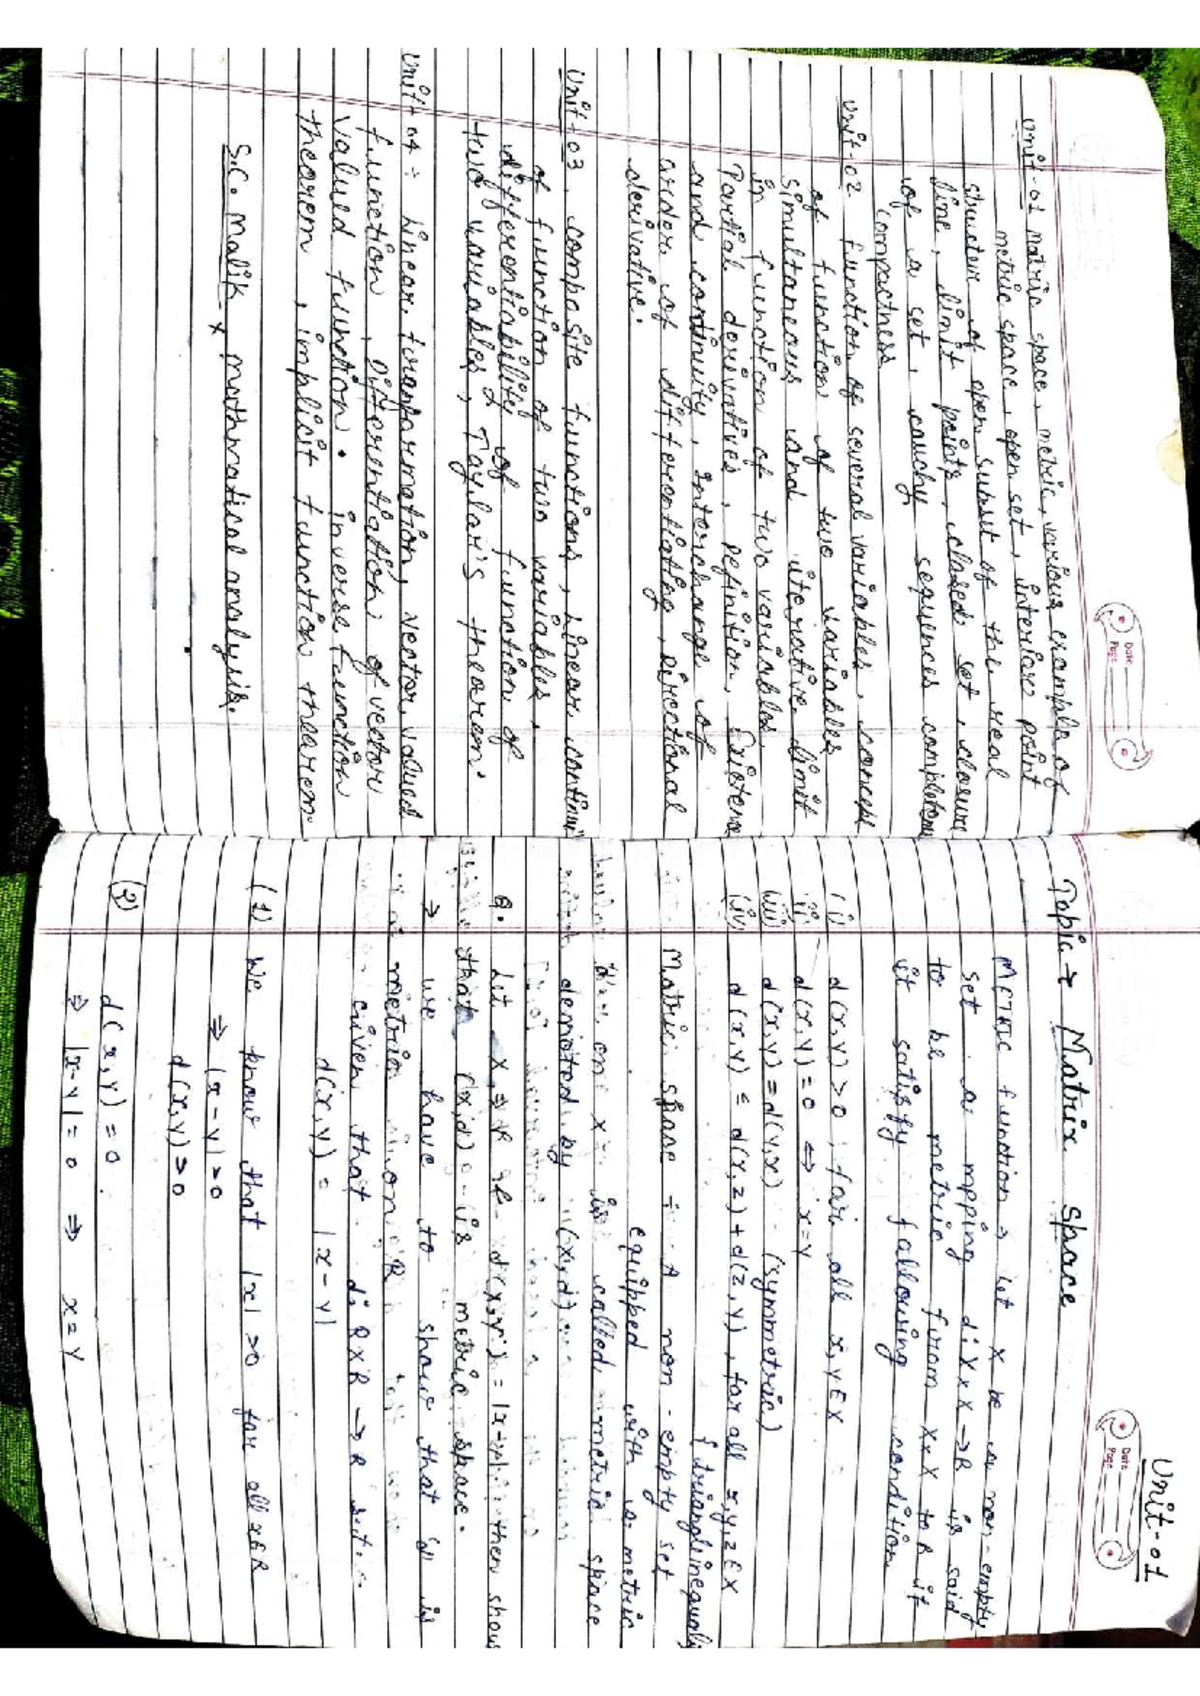 Date
Page
Unit-01 Matric space, metric, various example of
metric space, open set, interior point
structer of open subset of the real
line, limit points, closed set, closure
of a set, cauchy sequences completene
compactness
Unit-02 function of several variables, concept
of function of two variables
simultaneous and iterative limit
in function of two variables.
Partial derivatives, definition, Existens
and continuity, Interchange of
order of differentiating, directional
derivative.
Unit-03. composite functions, Linear continu
of function of two variables.
differentiability of function of
two variables, Taylor's theorem.
Unit-04 ÷ Linear. tranformation, vector, valued
function, Differentiation of vector
valued function. inverse function
theorem, implicit function thearem.
S.C. malik * mathmatical analysis.
Unit-01
Date
Page
Topic → Matrix space
METRIC function → Let X be a non-empty
set. a mpping d: X x X → R is said
to be metric from X x X to R if
it satisfy fallowing condition
(i) d(x,y) > 0, for all x, y ∈ X
(ii) d(x,y) = 0 ⇔ x=y
(iii) d(x,y) = d(y,x) (symmetric)
(iv) d(x,y) ≤ d(x,z) + d(z,y), for all x,y,z ∈ X
{trianglinequali
Matric space ÷ A non-empty set
equipped with a metric
on x is called metric space
denoted by (x,d)
Q. Let X = R d(x,y) = |x-y| then show
that (x,d) is metric space.
→ we have to show that d is
metric on R
given that d: R x R → R s.t.
d(x,y) = |x-y|
(1) We know that |x| > 0 for all x ∈ R
⇒ |x-y| > 0
d(x,y) > 0
(2) d(x,y) = 0
⇒ |x-y| = 0 ⇒ x=y